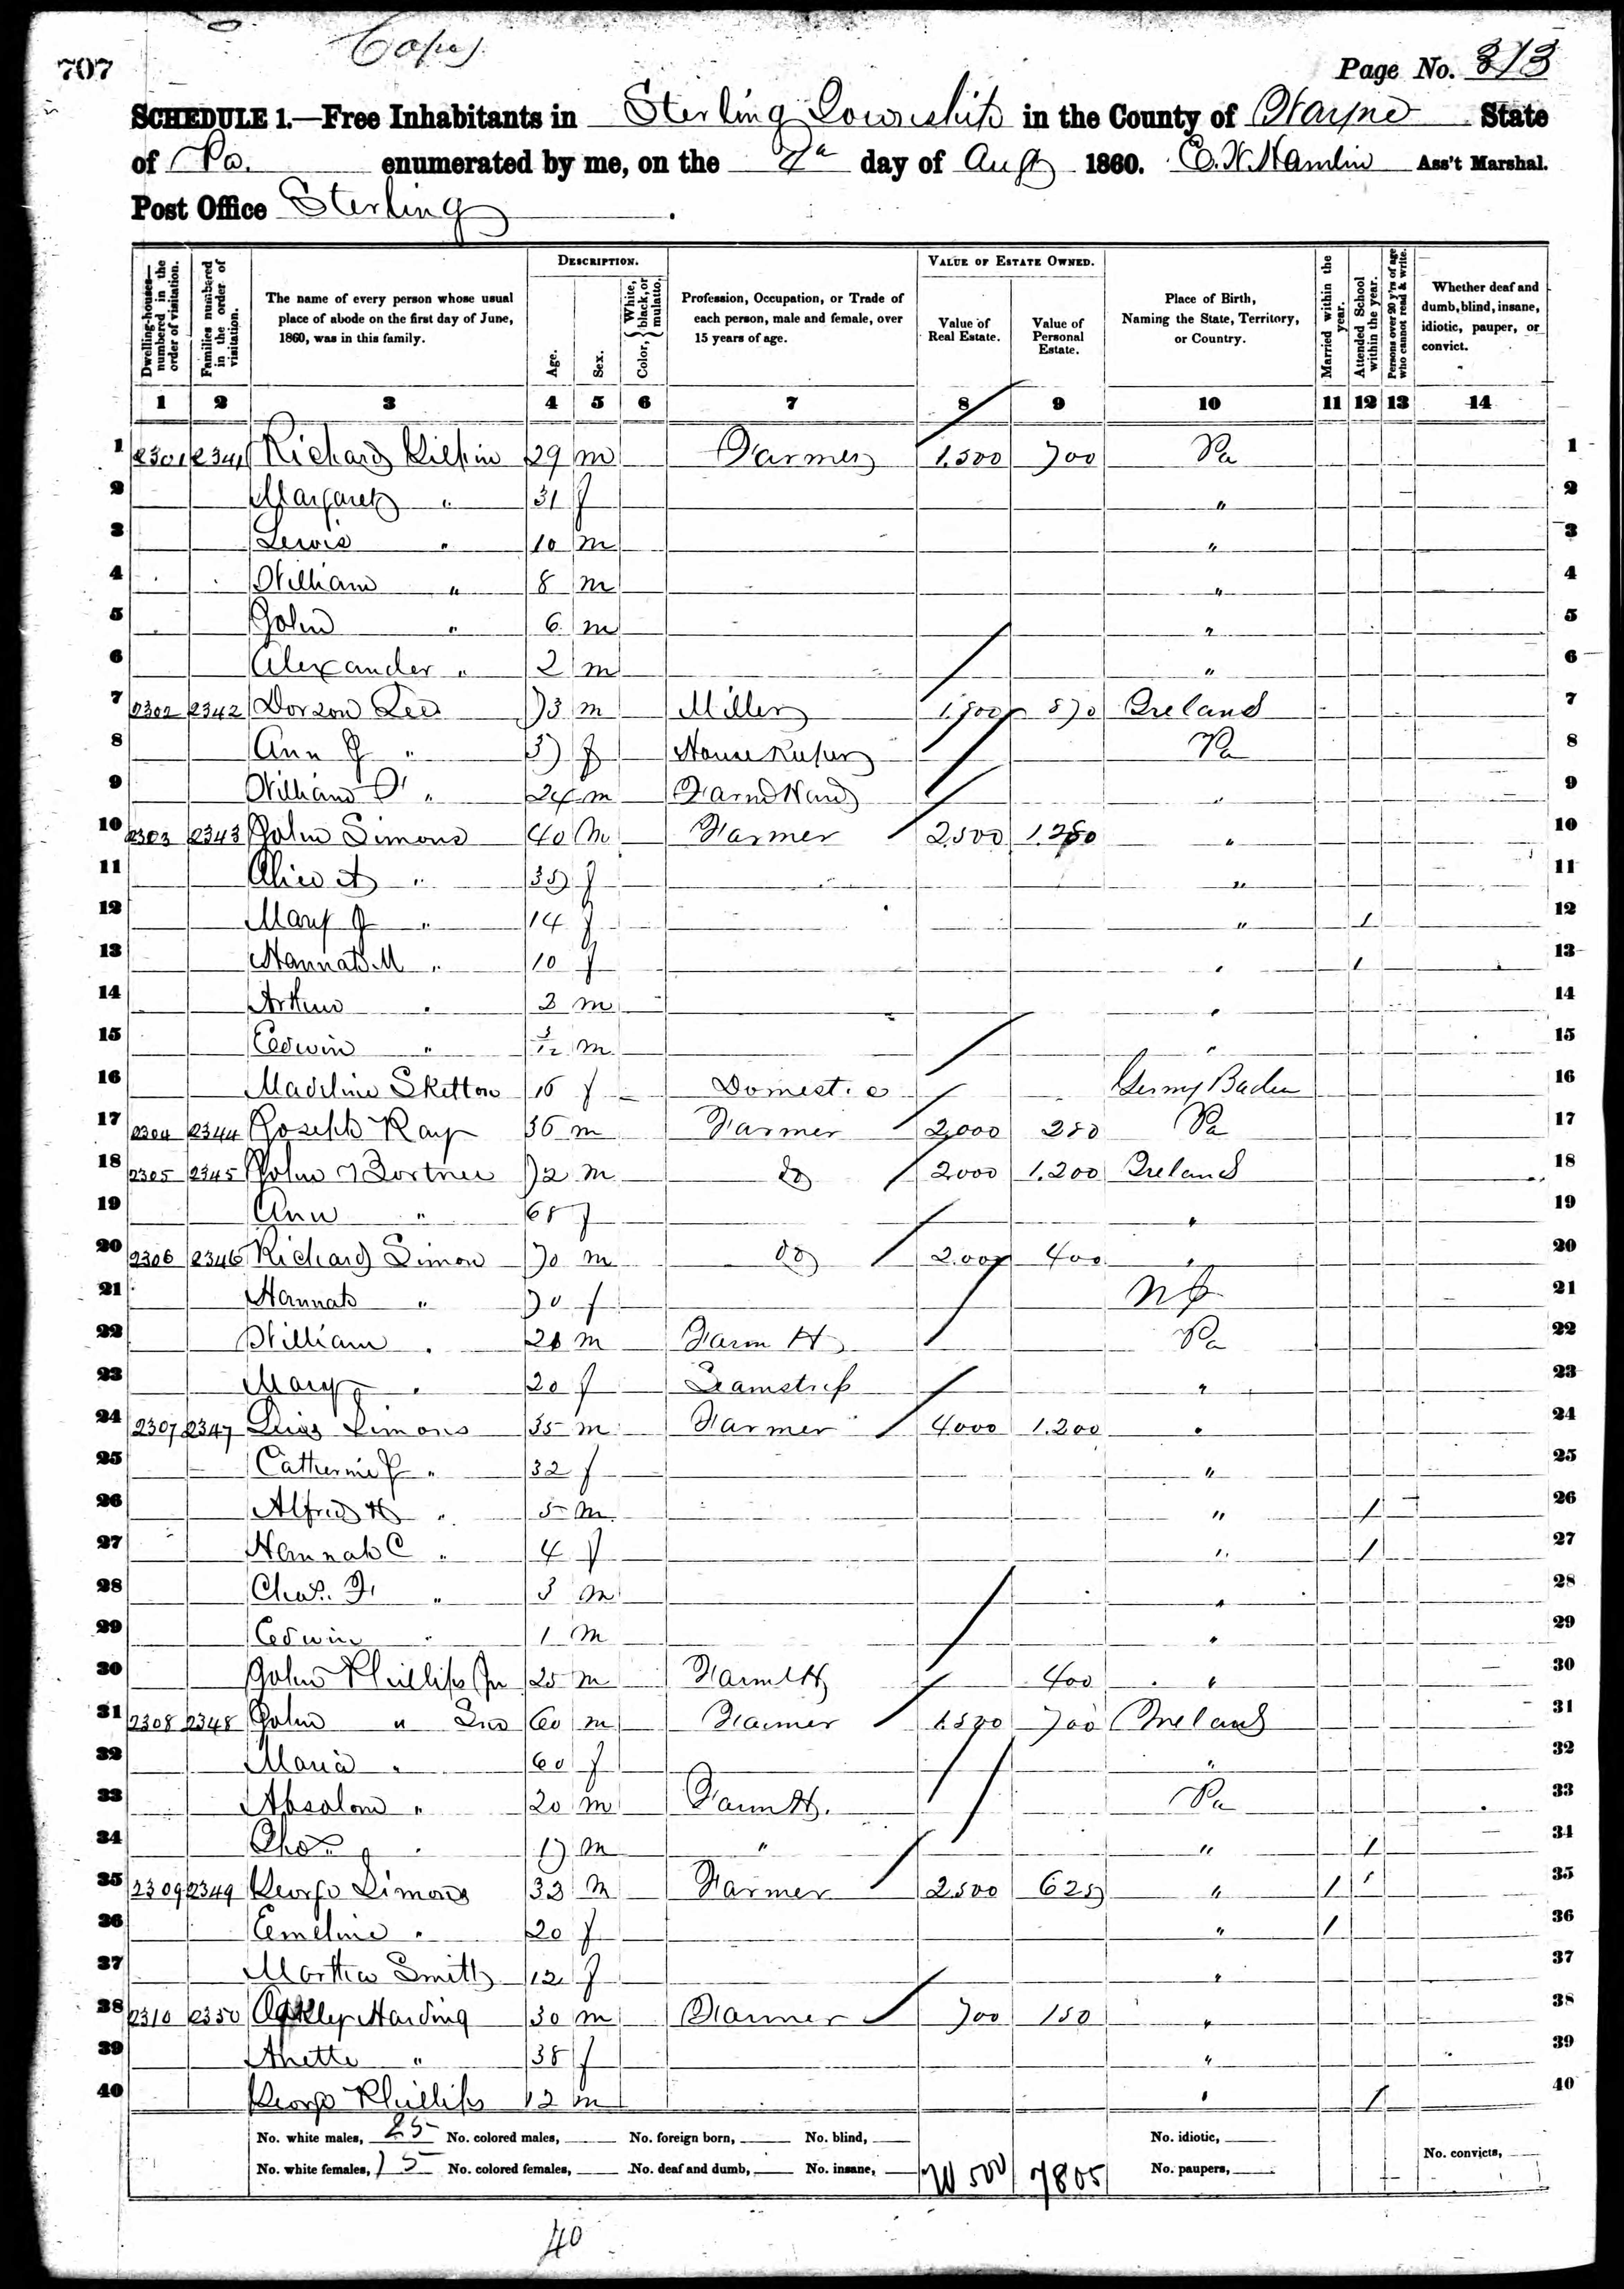 Copy
707
Page No. 313
SCHEDULE 1.—Free Inhabitants in Sterling Township in the County of Wayne State
of Pa. enumerated by me, on the day of Aug 1860. Hamlin Ass't Marshal.
Post Office Sterling
DESCRIPTION. VALUE OF ESTATE OWNED.
Dwelling-houses—numbered in the order of visitation. Families numbered in the order of visitation. The name of every person whose usual place of abode on the first day of June, 1860, was in this family. Age. Sex. Color, { White, black, or mulatto. Profession, Occupation, or Trade of each person, male and female, over 15 years of age. Value of Real Estate. Value of Personal Estate. Place of Birth, Naming the State, Territory, or Country. Married within the year. Attended School within the year. Persons over 20 y'rs of age who cannot read & write. Whether deaf and dumb, blind, insane, idiotic, pauper, or convict.
1 2 3 4 5 6 7 8 9 10 11 12 13 14
1 2301 2341 Richard 29 m Farmer 1,500 700 Pa 1
2 Margaret " 31 f " 2
3 Lewis " 10 m " 3
4 William " 8 m " 4
5 John " 6 m " 5
6 Alexander " 2 m " 6
7 2302 2342 Lee 73 m Miller 870 Ireland 7
8 Ann J " 37 f House Keeper Pa 8
9 William " 24 m Farm Hand " 9
10 2303 2343 John Simons 40 m Farmer 2,500 " 10
11 A " f " 11
12 Mary J " 14 f " 1 12
13 Hannah M " 10 f " 1 13
14 Arthur " m " 14
15 Edwin " 3/12 m " 15
16 Madeline 16 f Domestic Germy Baden 16
17 2304 2344 Joseph Ray 36 m Farmer 2,000 Pa 17
18 2305 2345 John 72 m do 2000 1,200 Ireland 18
19 Ann " 68 f " 19
20 2306 2346 Richard Simon 70 m do 2,000 400 " 20
21 Hannah " 70 f N J 21
22 William " m Farm H Pa 22
23 Mary " 20 f Seamstress " 23
24 2307 2347 Simons 35 m Farmer 4000 1,200 " 24
25 Catherine " 32 f " 25
26 Alfred H " 5 m " 1 26
27 Hannah C " 4 f " 1 27
28 Chas. F. " 3 m " 28
29 Edwin " 1 m " 29
30 John Phillips Jr 25 m Farm H 400 " 30
31 2308 2348 John " 60 m Farmer 1,500 700 Ireland 31
32 Maria " 60 f " 32
33 Absalom " 20 m Farm H. Pa 33
34 Chas " 17 m " " 1 34
35 2309 2349 George Simons 33 m Farmer 2,500 625 " 1 1 35
36 Emeline " 20 f " 1 36
37 Martha Smith 12 f " 37
38 2310 2350 Harding 30 m Farmer 700 150 " 38
39 " 38 f " 39
40 George Phillips 12 m " 1 40
No. white males, 25 No. colored males, No. foreign born, No. blind, No. idiotic,
No. white females, 15 No. colored females, No. deaf and dumb, No. insane, 7805 No. paupers, No. convicts,
40